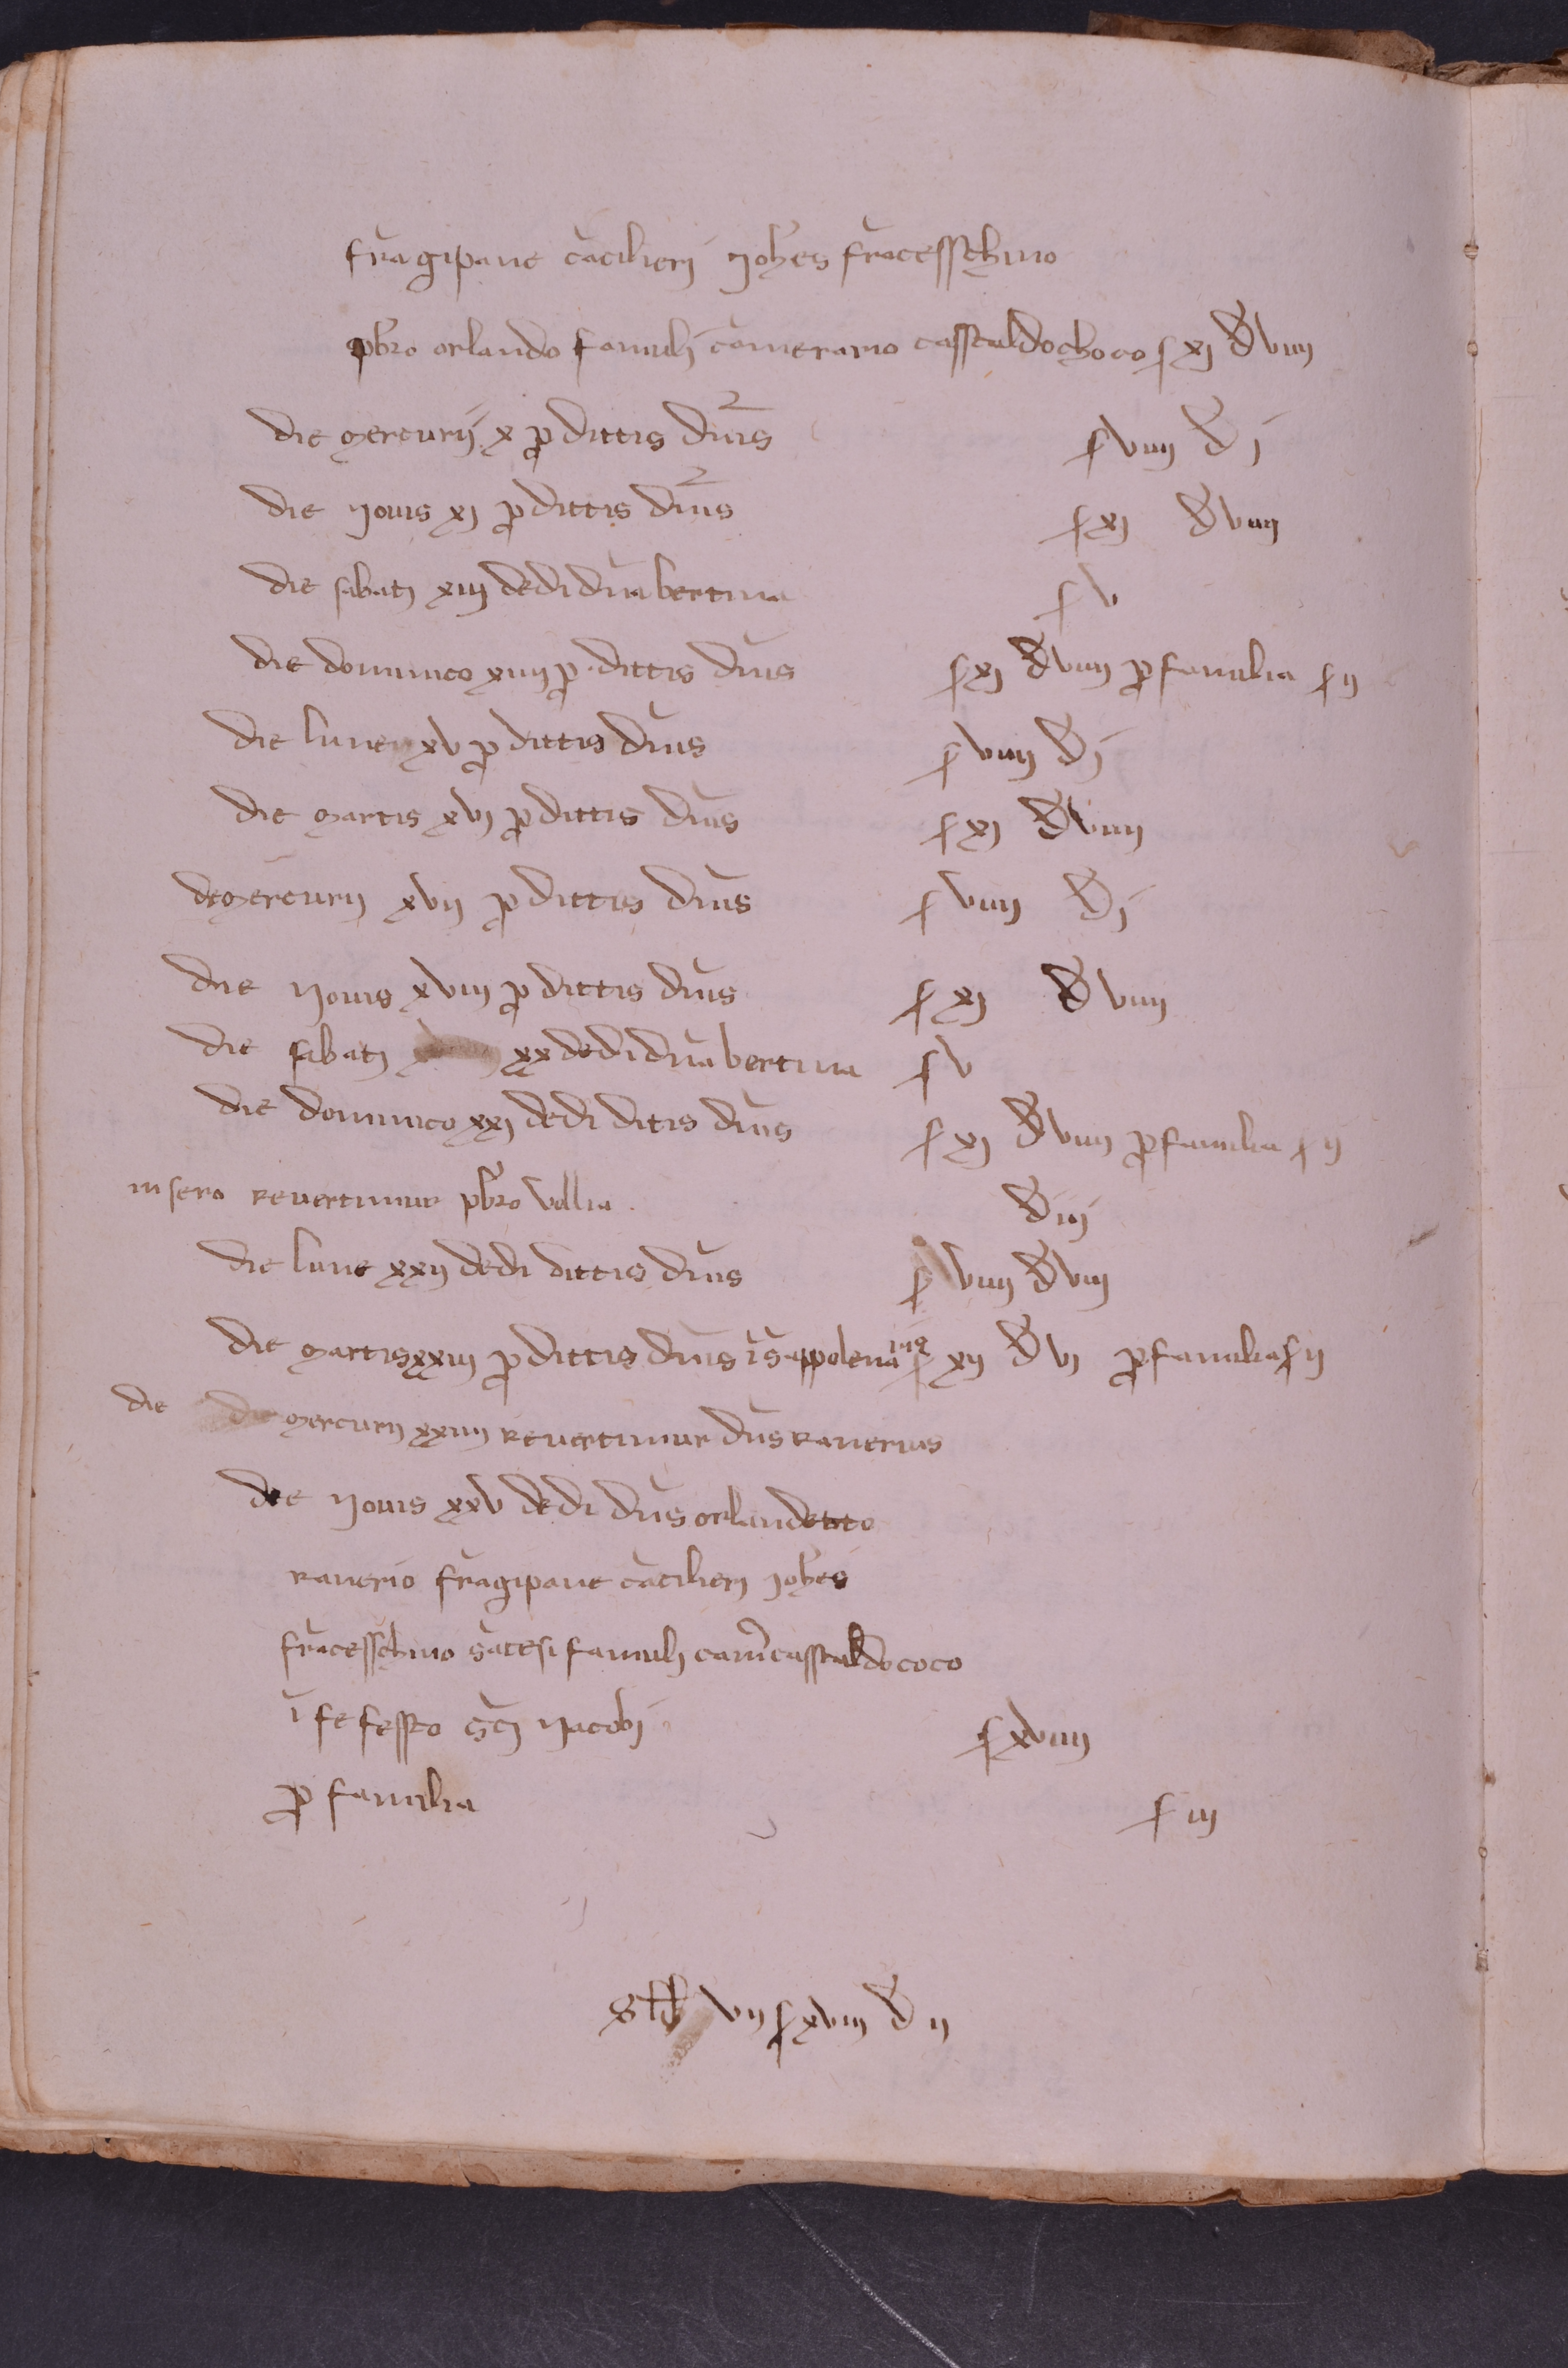 fragipane cācilierj Johēs frācesschino
pb̄ro orlando famulj camerario casstaldo choco ş xj đ viiij
die mercurij x ꝓ dittis dn̄is ş viiij đ j
die Jovis xj ꝓ dittis dn̄is ş xj đ viiij
die sabatj xiij dedi dn̄a bertina ş v
die dominico xiiij ꝓ dittis dn̄is ş xj đ viiij ꝓ familia ş ij
die lune xv ꝓ dittis dn̄is ş viiij đ j
die martis xvj ꝓ dittis dn̄is ş xj đ viiij
de mercurij xvij ꝓ dittis dn̄is ş viiij đ j
die Jovis xviij ꝓ dittis dn̄is ş xj đ viiij
die sabatj xx dedi dn̄a bertina ş v
die dominico xxj dedi ditis dn̄is ş xj đ viiij ꝓ familia ş ij
in sero revertimur pb̄ro vellia đ iij
die lune xxij dedi dittis dn̄is ş viiij đ viij
die martis xxiij ꝓ dittis dn̄is ī s̄ appolenaris ş xij đ vj ꝓ familia ş ij
die die mercurij xxiiij revertimur dn̄s Ranerius
die Jovis xxv dedi dn̄s orlandetto
ranerio frāgipane cācilierj Johēs
frācesschino s̄atesi famulj cam̄ casstaldo coco
ī fe fessto sc̄j Jacobj ş xviiij
ꝓ familia ş iij
S ƚƀ vij ş xviij đ ij